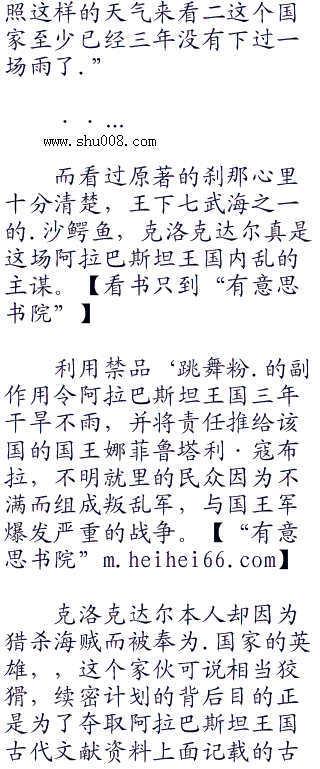 照这样的天气来看二这个国
家至少已经三年没有下过一
场雨了.”
. . ...
www.shu008.com
而看过原著的刹那心里
十分清楚，王下七武海之一
的.沙鳄鱼，克洛克达尔真是
这场阿拉巴斯坦王国内乱的
主谋。【看书只到“有意思
书院”】
利用禁品‘跳舞粉.的副
作用令阿拉巴斯坦王国三年
干旱不雨，并将责任推给该
国的国王娜菲鲁塔利·寇布
拉，不明就里的民众因为不
满而组成叛乱军，与国王军
爆发严重的战争。【“有意
思书院”m.heihei66.com】
克洛克达尔本人却因为
猎杀海贼而被奉为.国家的英
雄，，这个家伙可说相当狡
猾，续密计划的背后目的正
是为了夺取阿拉巴斯坦王国
古代文献资料上面记载的古